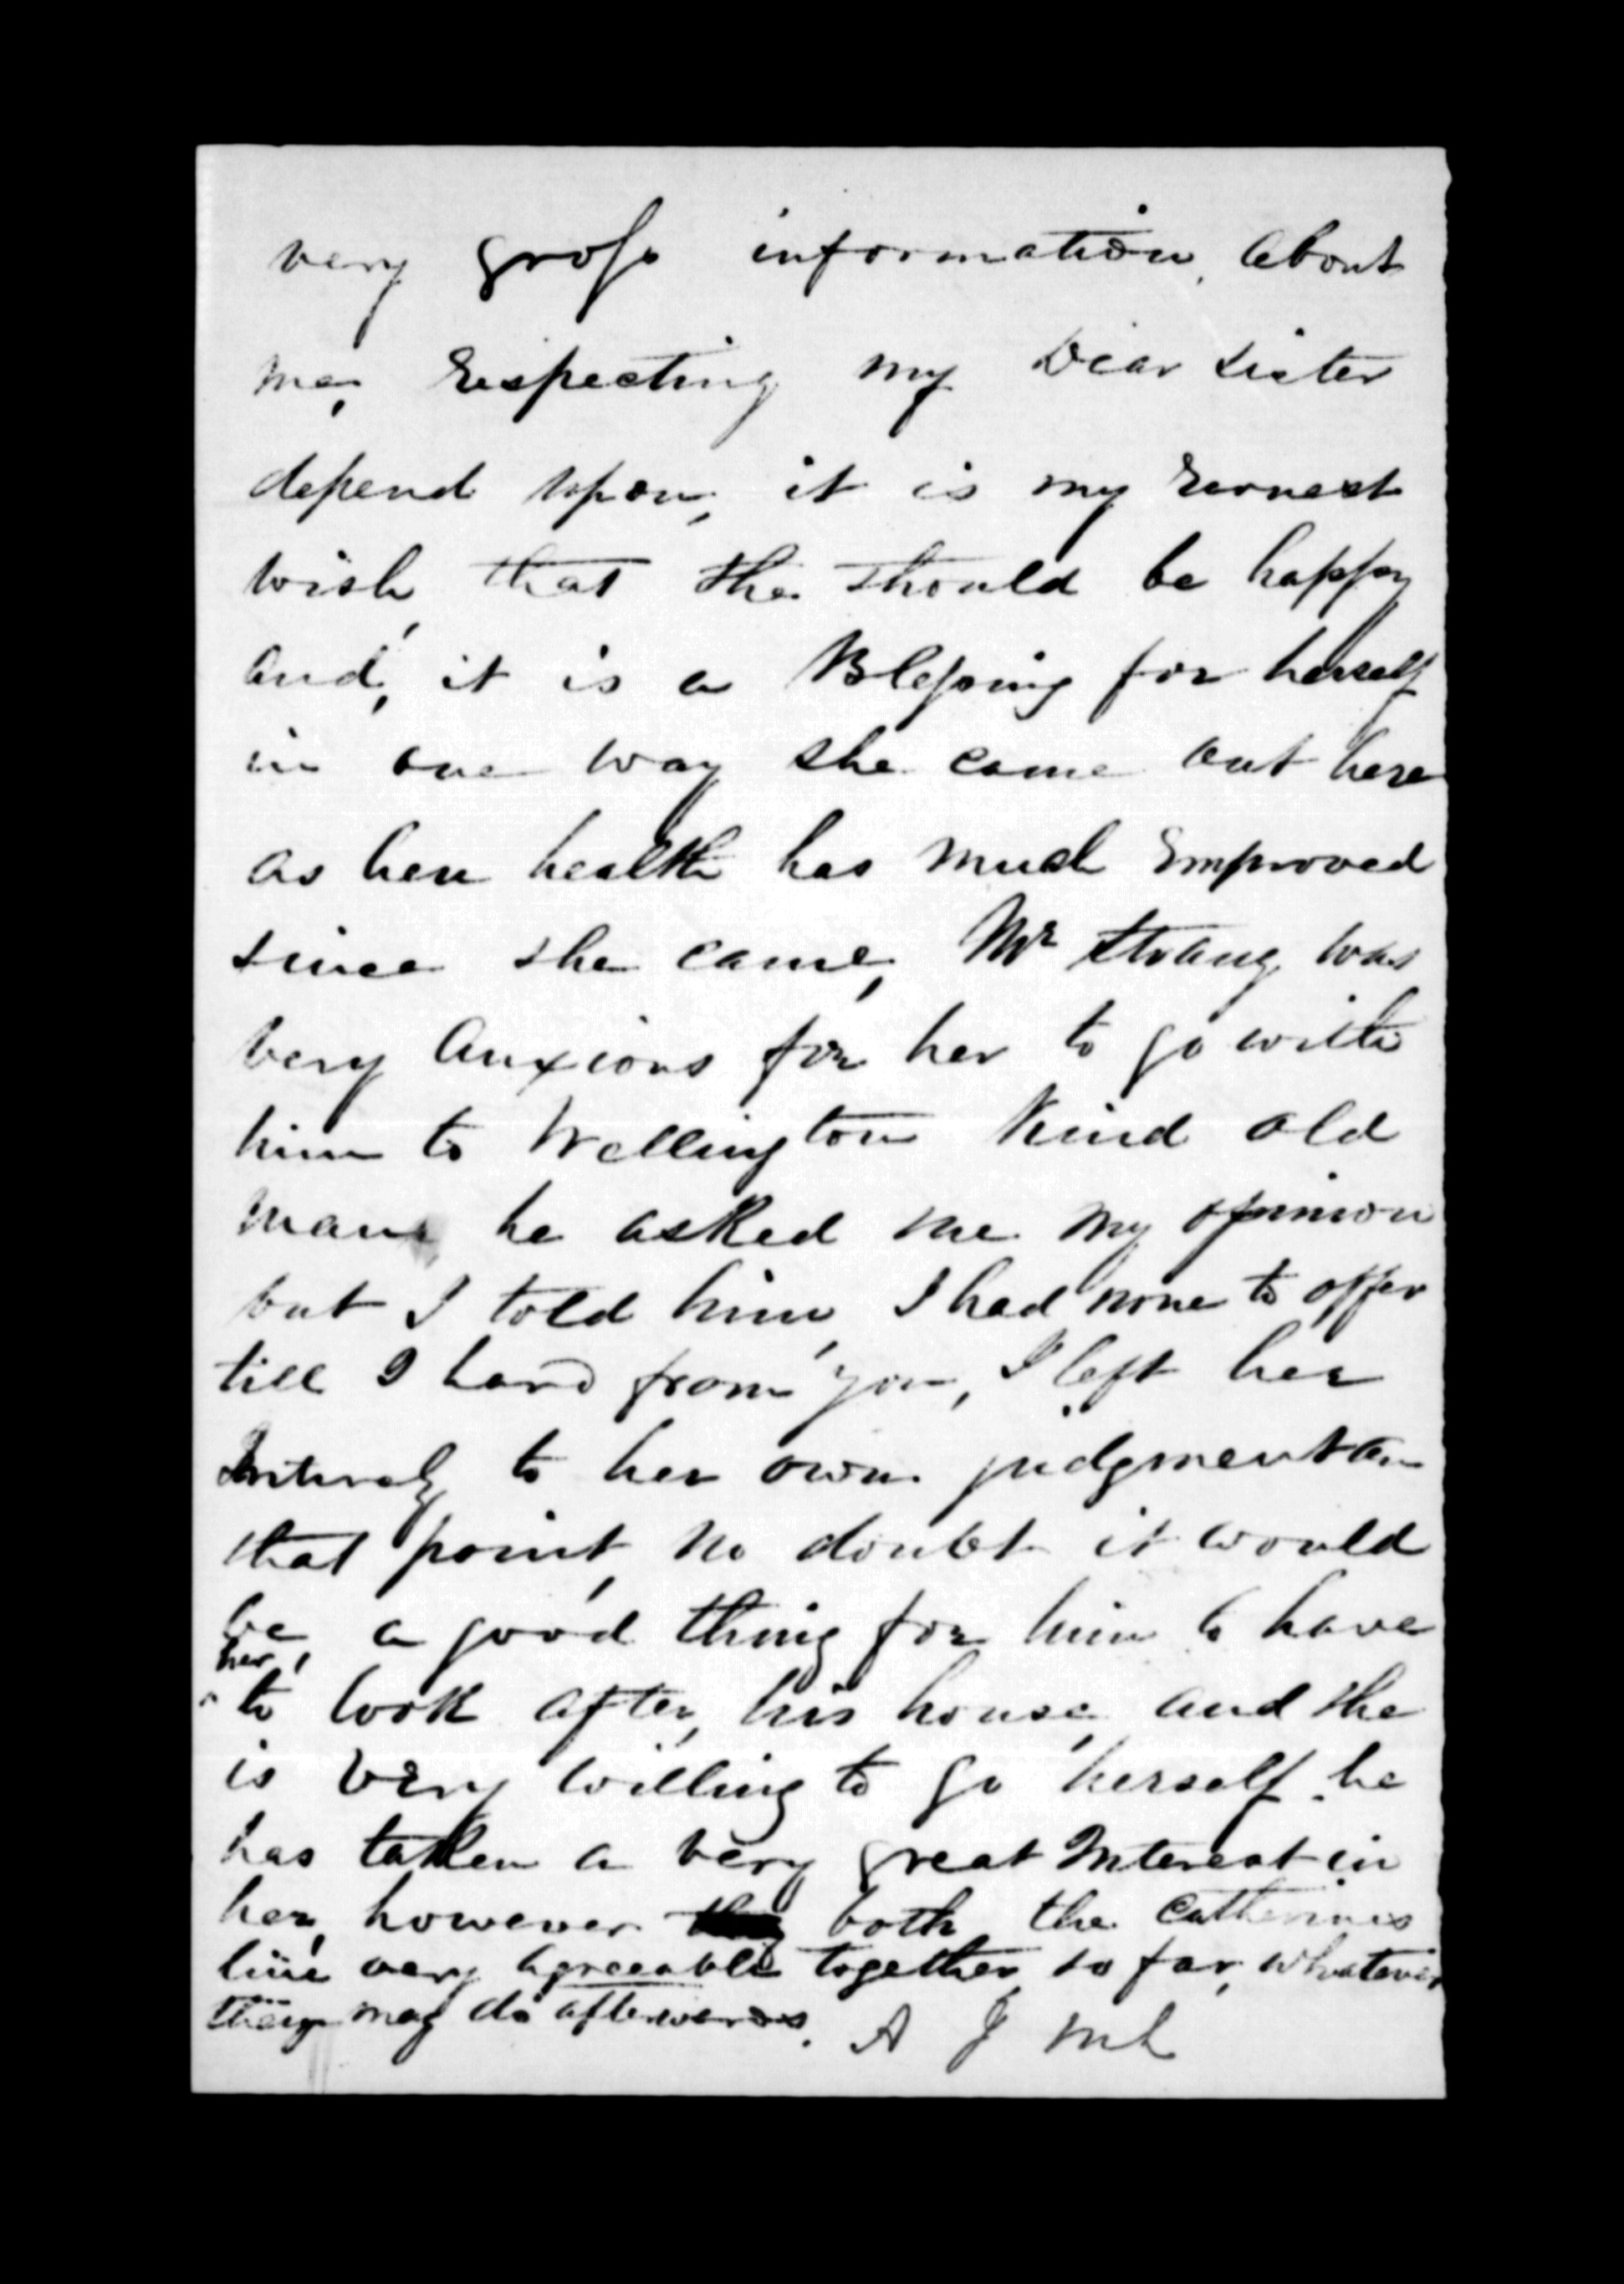 very gross information, about
me, Respecting my Dear sister
depend upon, it is my Earnest
wish, that she should be happy
and, it is a Blessing for herself
in one way she came out here
as her health has much Improved
since she came, Mr Strang was
very anxious for her to go with
him to Wellington Kind old
man, he asked me my opinion
but I told him, I had none to offer
till I hard from you, I left her
Intirely to her own judgment on
that point, no doubt it would
be, a good thing for him to have
her,
to look after, his house, and she
is very willing to go herself. he
has taken a very great Interest in
her, however they both the Catherines
live very agreeable together so far, whatever
they may do afterwards. A J McL